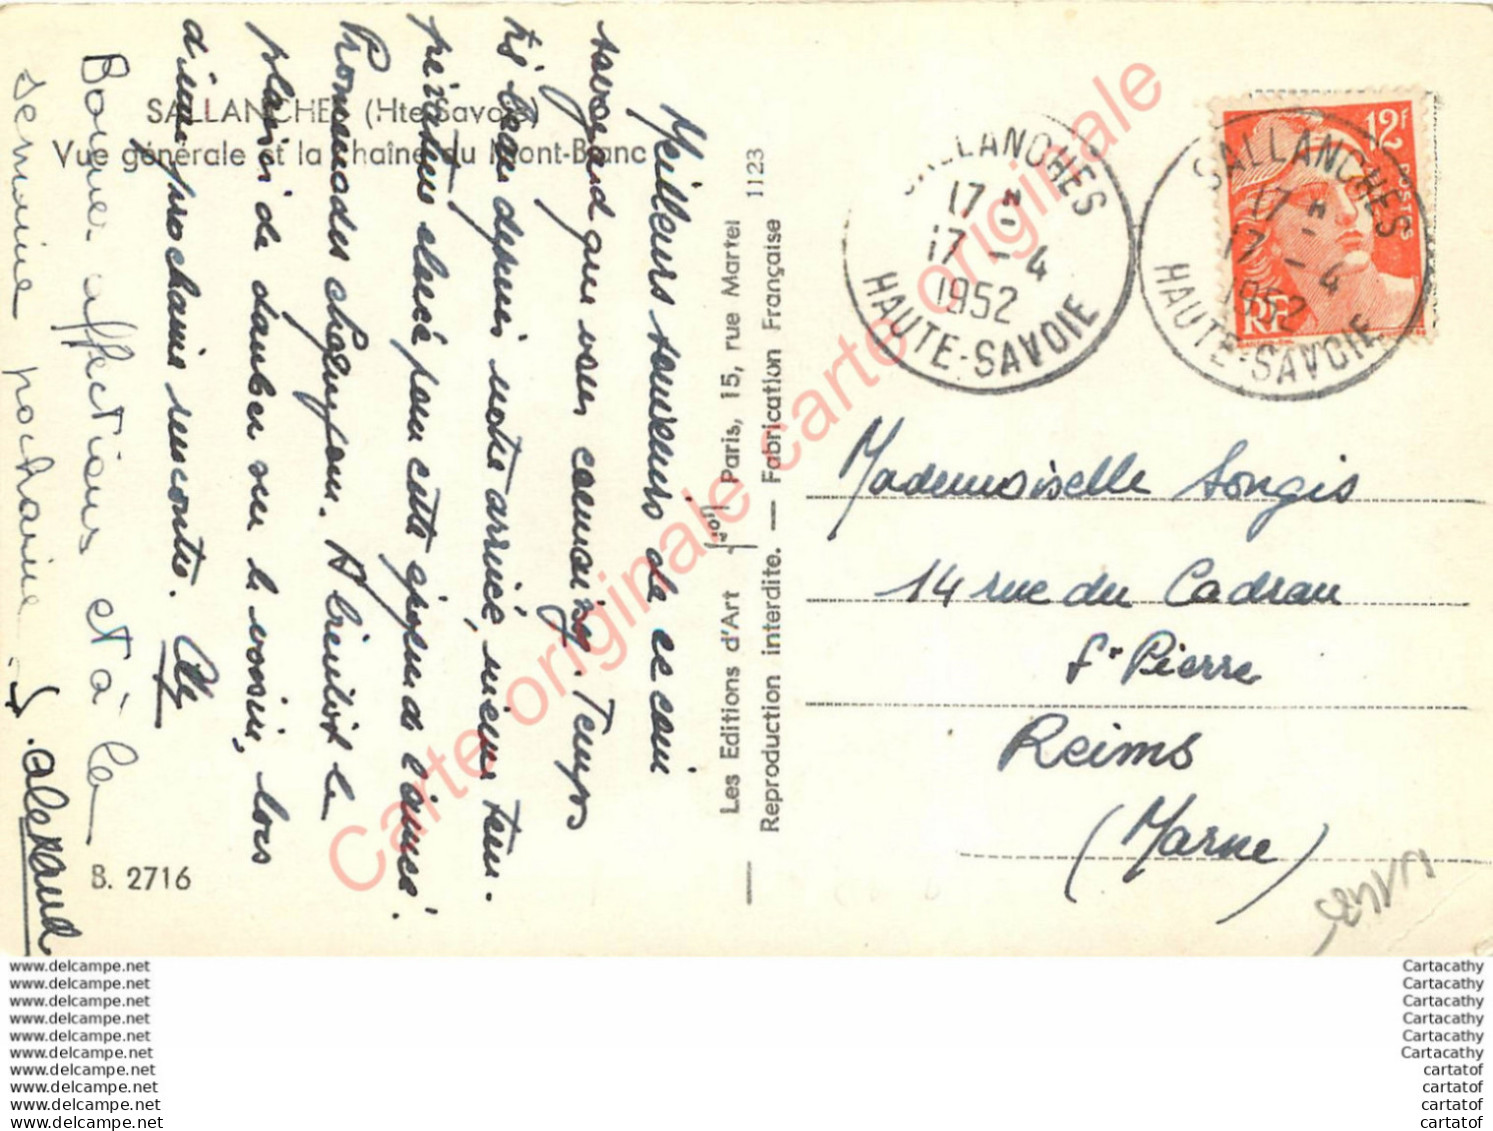 SALLANCHES (Hte-Savoie)
Vue générale et la Chaîne du Mont-Blanc
Meilleurs souvenirs de ce coin
savoyard que vous connaissez. Temps
très beau depuis notre arrivée, mieux tem-
pérature élevée pour cette époque de l'année.
Promenades chaque jour. A bientôt le
plaisir de d'une prochaine rencontre.
Bonnes affections et à la
semaine prochaine
S. Alexand
B. 2716
Les Editions d'Art "Jof" Paris, 15, rue Martel 1123
Reproduction interdite. — Fabrication Française
SALLANCHES
17 H
17 - 4
1952
HAUTE-SAVOIE
SALLANCHES
17 H
17 - 4
1952
HAUTE-SAVOIE
12F
POSTES
RF
Mademoiselle Songis
14 rue du Cadran
St Pierre
Reims
(Marne)
Carte originale carte originale carte originale
www.delcampe.net
www.delcampe.net
www.delcampe.net
www.delcampe.net
www.delcampe.net
www.delcampe.net
www.delcampe.net
www.delcampe.net
www.delcampe.net
www.delcampe.net
Cartacathy
Cartacathy
Cartacathy
Cartacathy
Cartacathy
Cartacathy
cartatof
cartatof
cartatof
cartatof